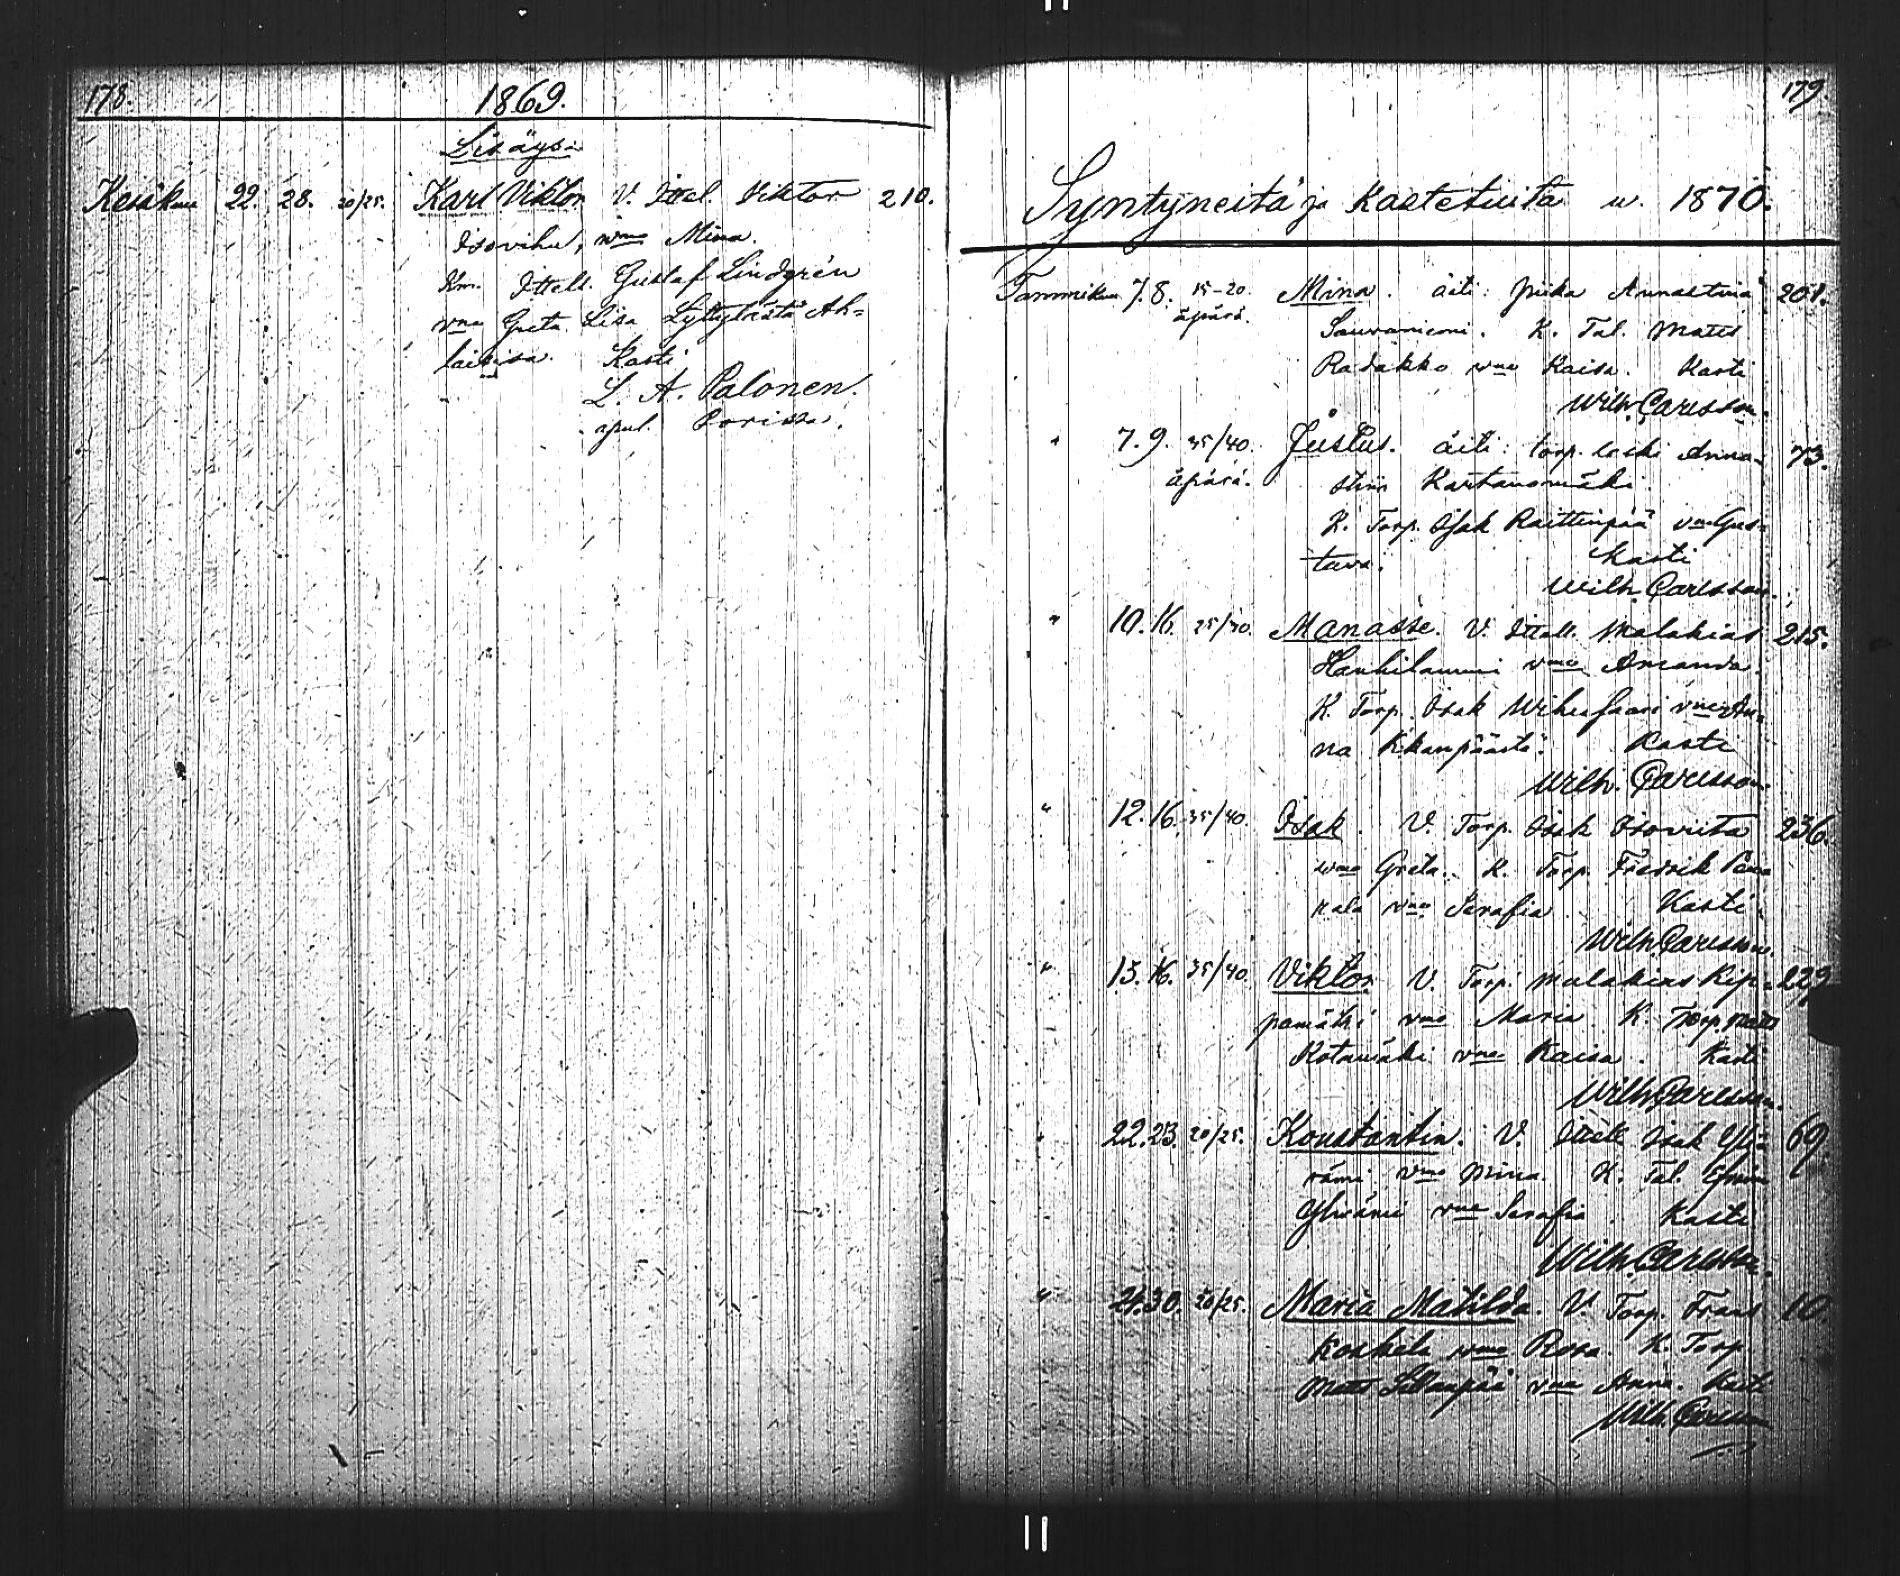 178.
1869.
Lisäys.
Kesäkuu 22. 28. 20/25. Karl Viktor V. Ittel. Viktor 210.
Isovihu, vmo Mina.
Km. Ittell. Gustaf Lindgrén
vmo Greta Lisa Ah=
laisissa. Kasti
L. A. Palonen.
apul. Porissa.
179.
Syntyneitä ja Kastetuita w. 1870.
Tammikuu 7. 8. 15-20. Mina. äiti: piika Annastina 201.
äpärä. K. Tal. Matts
vmo Kaisa. Kasti
Wilh. Carlsson.
" 7. 9. 35/40. Justus. äiti: torp. leski Anna= 73.
äpärä. stina Kartanomäki.
K. Torp. Isak Raittinpää vmo Gus=
tava. Kasti
Wilh. Carlsson.
" 10. 16. 25/30. Manasse. V. Ittell. Malakias 215.
vmo Amanda.
K. Torp. Isak vmo An=
na Kasti
Wilh. Carlsson.
" 12. 16. 35/40. Isak. V. Torp. Isak Isoviita 236.
vmo Greta. K. Torp. Fredrik
vmo Serafia. Kasti.
Wilh. Carlsson.
" 15. 16. 35/40. Viktor V. Torp. Malakias Kip= 229.
pamäki vmo Maria K. Torp. Matts
Kotamäki vmo Kaisa. Kasti
Wilh. Carlsson.
" 22. 23. 20/25. Konstantin. V. Ittell Isak Yli= 69.
vmo Mina. K. Tal.
vmo Serafia. Kasti
Wilh. Carlsson.
" 30. 20/25. Maria Matilda. V. Torp. Frans 10
Koskela vmo Rosa. K. Torp.
Matts Sillanpää vmo Anna. Kasti
Wilh. Carlsson